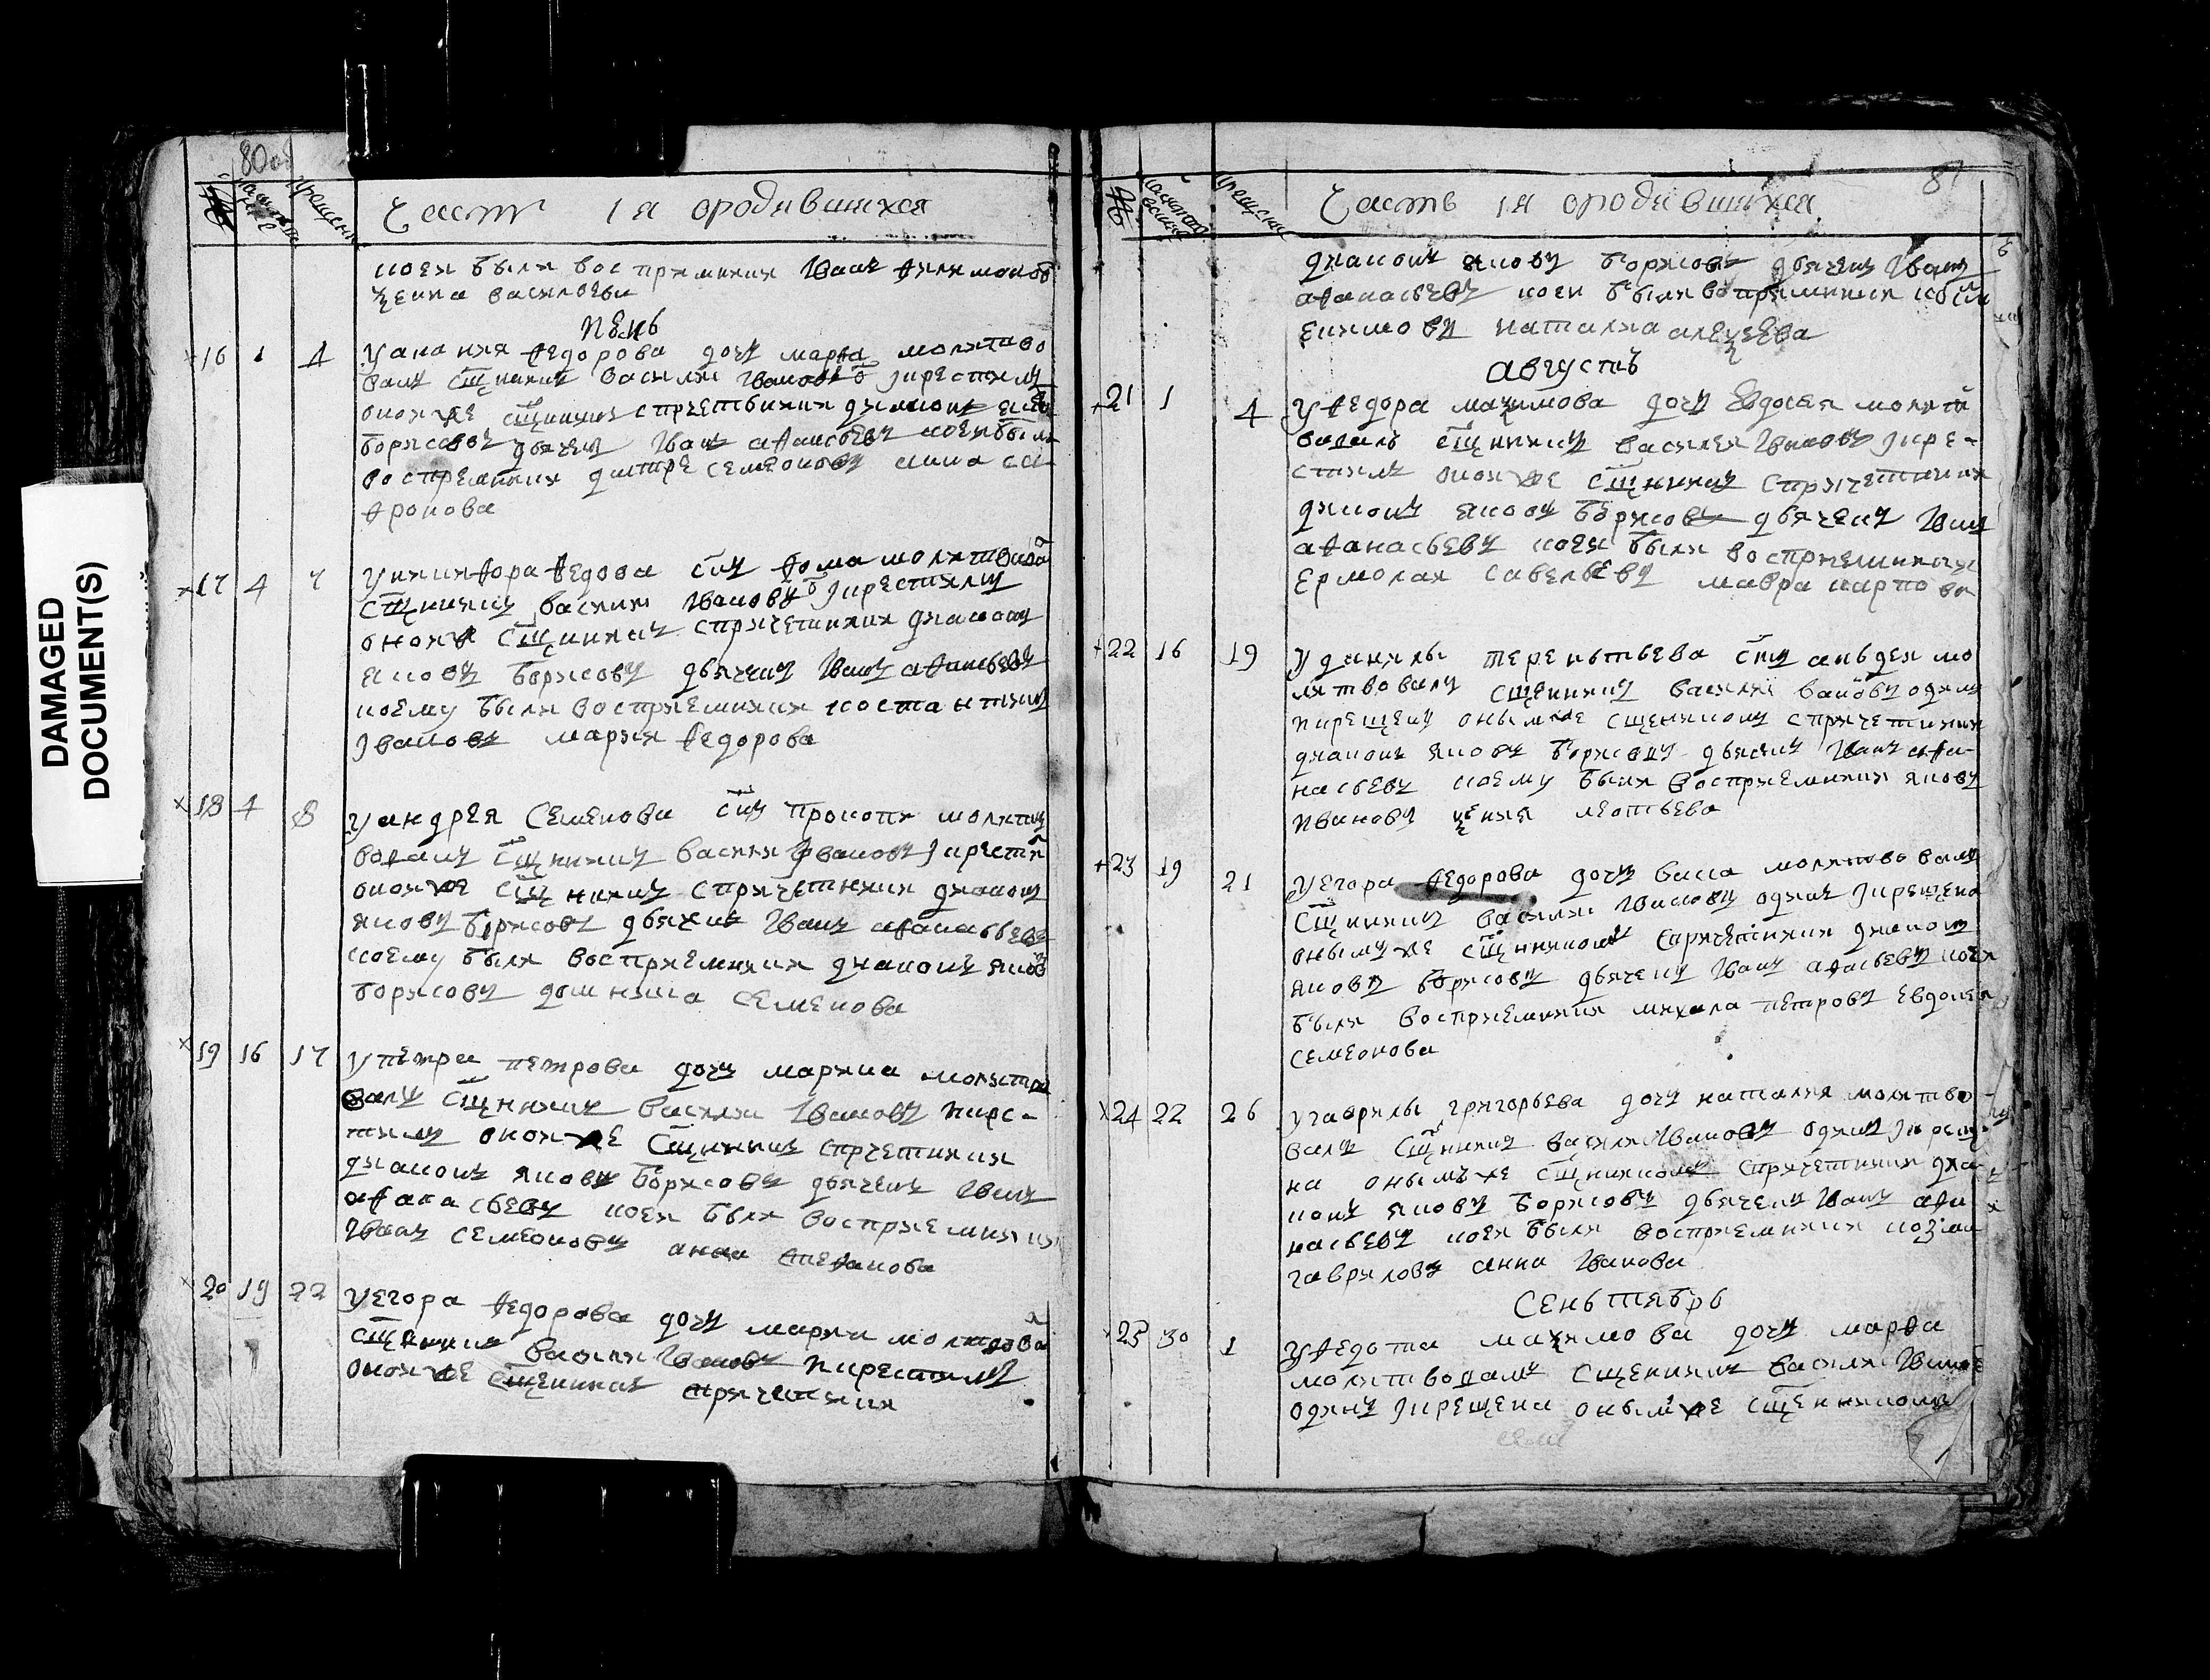 DAMAGED
DOCUMENT(S)
80
крещенъ
Часть 1я ородившихся
коеи были воспримники Иванъ
Ѯения Василева
16 1 4 У Анания Федорова дочъ Марфа молитво
валъ сщникъ Василеи Ивановъ и крестилъ
оной же сщникъ спричетники диаконъ
Борисовъ дьячекъ Иванъ Афанасьевъ коеи были
воспремники Дмитре Семеоновъ Анна Са
фронова
17 4 7 У Никифора Федова снъ Фома молитвова
сщникъ Василеи Ивановъ и крестилъ
оной же сщникъ спричетники диаконъ
Яковъ Борисовъ дьячекъ Иванъ Афанасьевъ
коему были восприемники Костантинъ
Ивановъ Мария Федорова
18 4 8 У Андрея Семенова снъ Прокопи молитъ
вовалъ сщникъ Василеи Ивановъ и крести
оной же сщникъ спричетники диаконъ
Яковъ Борисовъ дьячекъ Иванъ Афанасьевъ
коему были восприемники диаконъ Яков
Борисовъ Домника Семенова
19 16 17 У Петра Петрова дочъ Марина молитво
валъ сщникъ Василеи Ивановъ и крес-
тилъ оной же сщникъ спрчетники
диаконъ Яковъ Борисовъ дьячекъ Иванъ
Афанасьевъ коеи были восприемники
Иванъ Семеоновъ Анна Стефанова
20 19 22 У Егора Федорова дочъ Мария молитвова
сщенникъ Василеи Ивановъ и крестилъ
оной же сщенникъ спричетники
81
крещение
Часть 1я ородившихся
диаконъ Яковъ Борисовъ дьячекъ Иванъ
Афанасьевъ коеи были воприемники
Екимовъ Наталиа Алеѯеева
Августъ
21 1 4 У Федора Маѯимова дочъ Евдокия молит
вовалъ сщникъ Василеи Ивановъ и кре-
стилъ оной же сщникъ спричетники
диаконъ Яковъ Борисовъ дьячекъ Иванъ
Афанасьевъ коеи были восприемники
Ермолаи Савельевъ Мавра Карпова
22 16 19 У Данилы Терентьева снъ Авьдеи мо
литвовалъ сщенникъ Василеи Вановъ одинъ
и крещенъ оным же сщенникомъ спричетники
диаконъ Яковъ Борисовъ дьячекъ Иванъ Афа-
насьевъ коему были восприемники Яковъ
Ивановъ Ѯения Леотьева
23 19 21 У Егора Федорова дочъ Васса молитвовалъ
сщникъ Василеи Ивановъ одинъ и крещена
онымъ же сщникомъ спричетники диаконъ
Яковъ Борисовъ дьячекъ Иванъ Афасьевъ коеи
были восприемники Михаила Петровъ Евдокея
Семеонова
24 22 26 У Гаврилы Григорьева дочъ Наталия молитво-
валъ сщникъ Василеи Ивановъ одинъ и креще
на онымъ же сщникомъ спричетники диа-
конъ Яковъ Борисовъ дьячекъ Иванъ Афа
насьевъ коеи были восприемники Козма
Гавриловъ Анна Иванова
Сеньтябрь
25 30 1 У Федота Маѯимова дочъ Марфа
молитвовалъ сщеникъ Василеи Иванов
одинъ и крещена оным же сщенникомъ